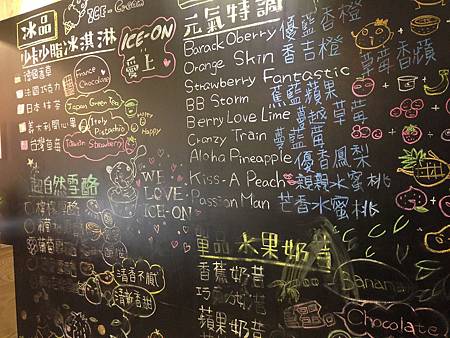 冰品
ICE-
少卡少脂冰淇淋
ICE-ON
愛上
德國香草
法國巧克力
日本抹茶
義大利開心果
台灣草莓
France Chocolasy
Japan Green Tea
Italy Pistachio
Taiwan Strawberry
Happy
Happy
超自然雪酪
WE
LOVE
ICE-ON
清香不膩
清新香甜
元氣特調
Barack Oberry 優藍香橙
Orange Skin 香吉橙
Strawberry Fantastic 莓莓香蘋
BB Storm 蕉藍蘋果
Berry Love Lime 蔓越草莓
Cranzy Train 蔓藍莓
Aloha Pineapple 優香鳳梨
Kiss-A Peach 親親水蜜桃
Passion Man 芒香水蜜桃
單品 水果奶昔
香蕉奶昔
Banana
蘋果奶昔
Chocolate